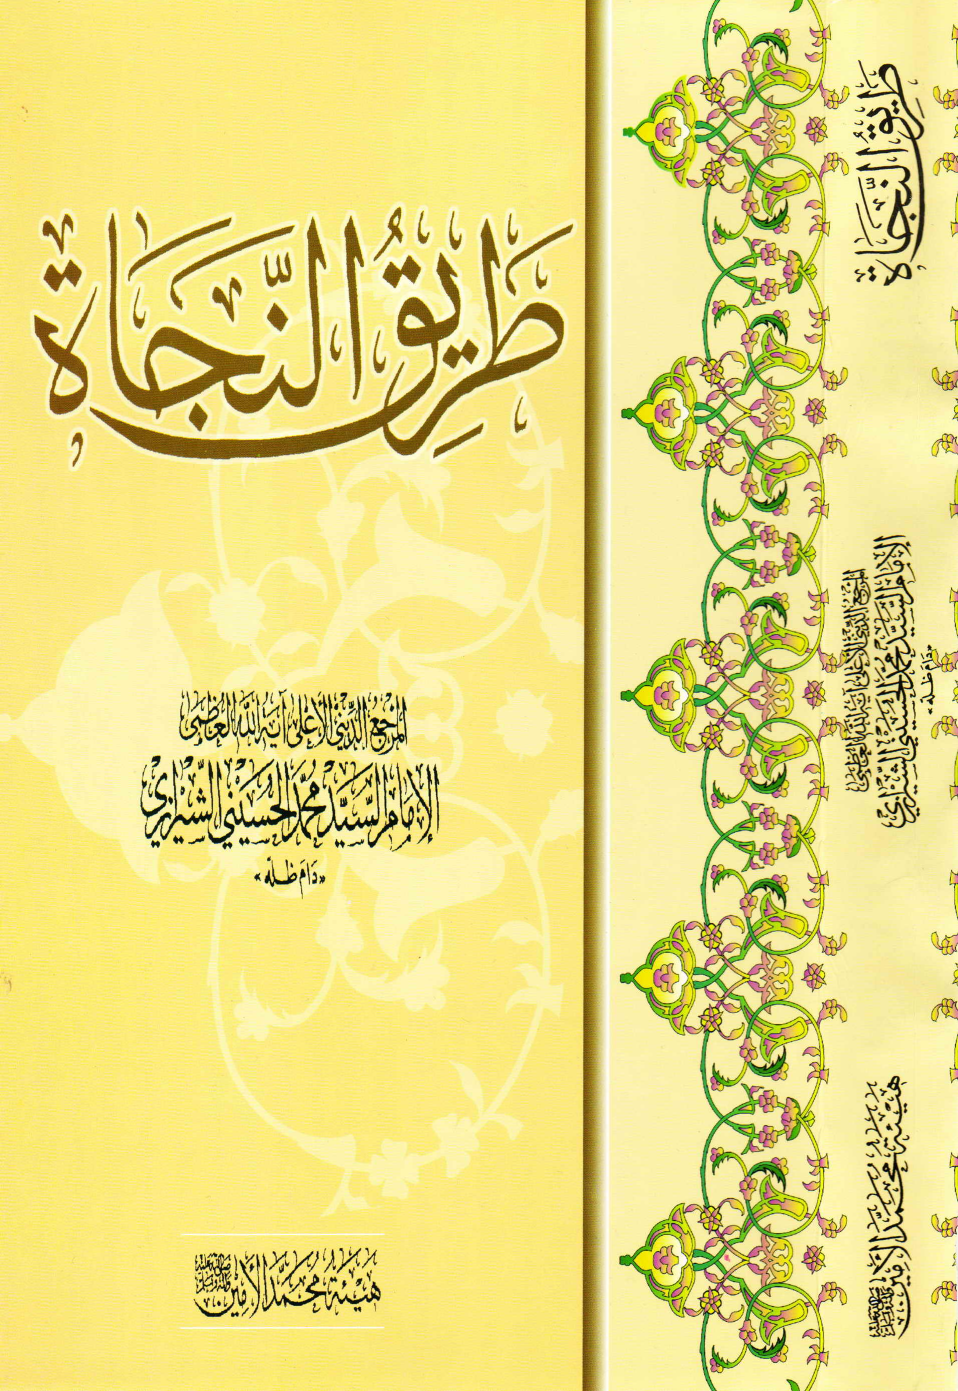 طَرِيقُ النَّجَاة
المرجع الديني الأعلى آية الله العظمى
الإمام السيد محمد الحسيني الشيرازي
«دام ظله»
هيئة محمد الأمين
طريق النجاة
المرجع الديني الأعلى آية الله العظمى
الإمام السيد محمد الحسيني الشيرازي
«دام ظله»
هيئة محمد الأمين